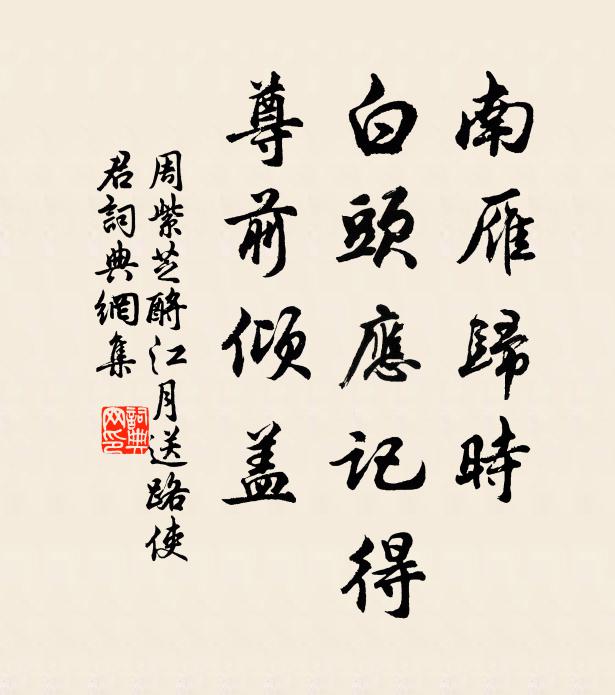 南雁歸時
白頭應記得
尊前傾蓋
周紫芝酹江月送路使
君詞典網集
詞典網印